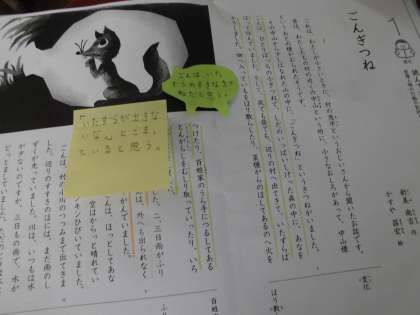 ごんぎつね
新美 南吉 作
かすや 昌宏 絵
これは、わたしが小さいときに、村の茂平というおじいさんから聞いたお話です。
昔は、わたしたちの村の近くの中山という所に、小さなおしろがあって、中山様
というおとの様がおられたそうです。
その中山から少しはなれた山の中に、「ごんぎつね」というきつねがいました。
ごんは、ひとりぼっちの小ぎつねで、しだのいっぱいしげった森の中に、あなを
ほって住んでいました。そして、夜でも昼でも、辺りの村へ出てきて、いたずらば
かりしました。畑へ入っていもをほり散らしたり、菜種がらのほしてあるのへ火を
つけたり、百姓家のうら手につるしてある
とんがらしをむしり取っていったり、いろ
二、三日雨がふり
は、外へも出られなく
がんでいました。
ごんは、ほっとしてあな
空はからっと晴れてい
ンひびいていました。
ごんは、村の小川のつつみまで出てきま
した。辺りのすすきのほには、まだ雨のし
ずくが光っていました。川は、いつもは水
が少ないのですが、三日もの雨で、水が
どっとましていました。
ごんは、いた
ずらのすきなきつ
ねだと思う。
いたずらが出きな
と思う。
変化
ほり散
百姓